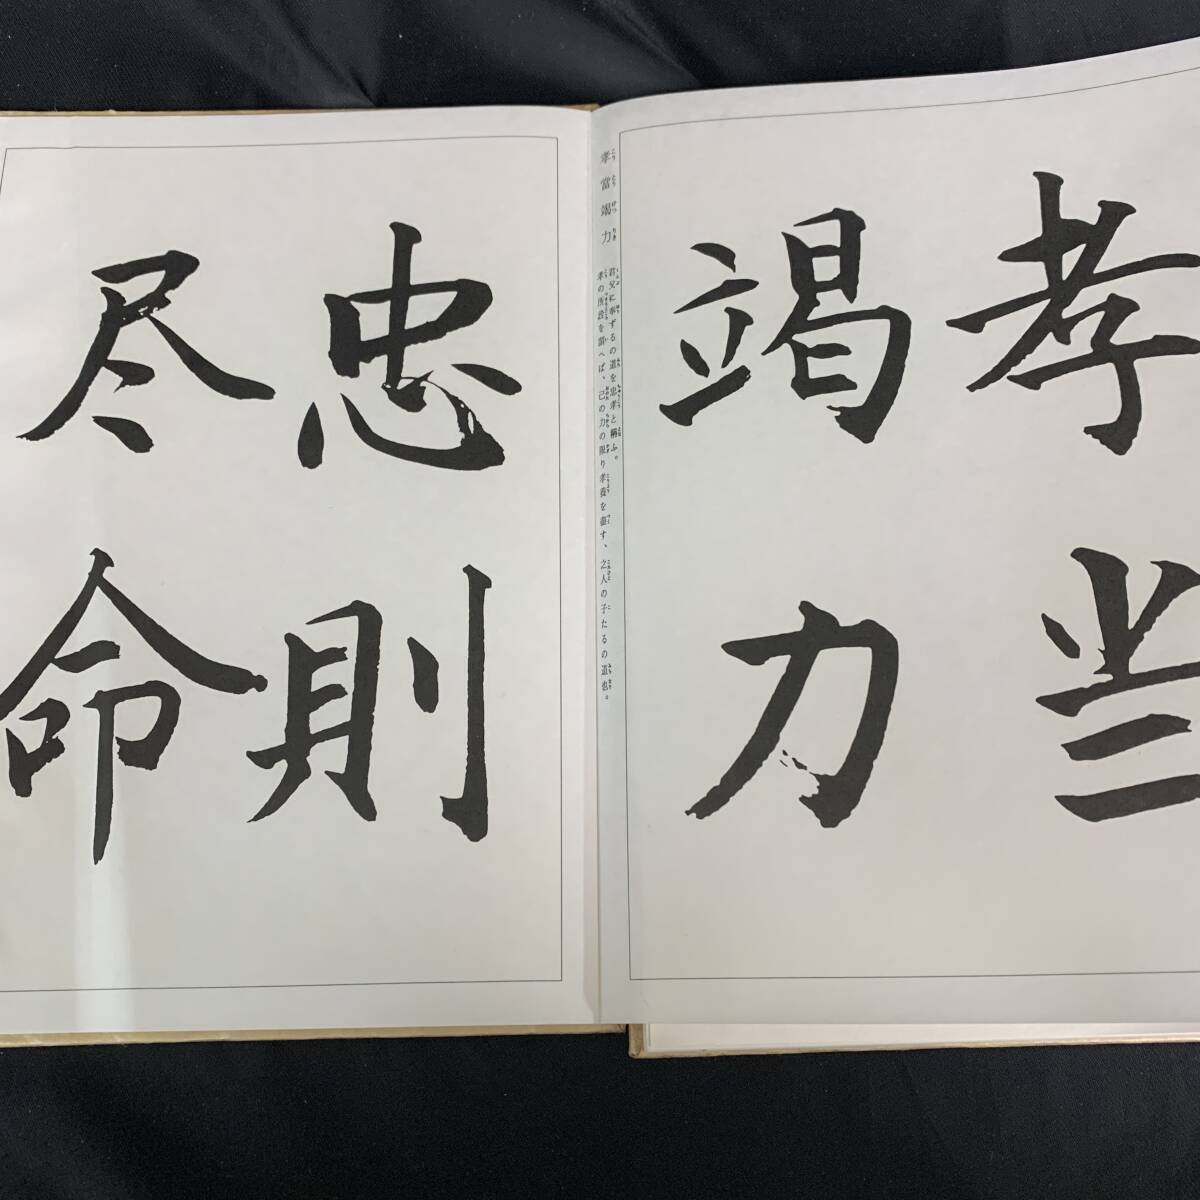 孝当
竭力
孝當竭力
君父に奉ずるの道を忠孝と稱ふ。
孝の所詮を謂へば、己の力の限り孝養を盡す、之人の子たるの道也。
忠則
尽命